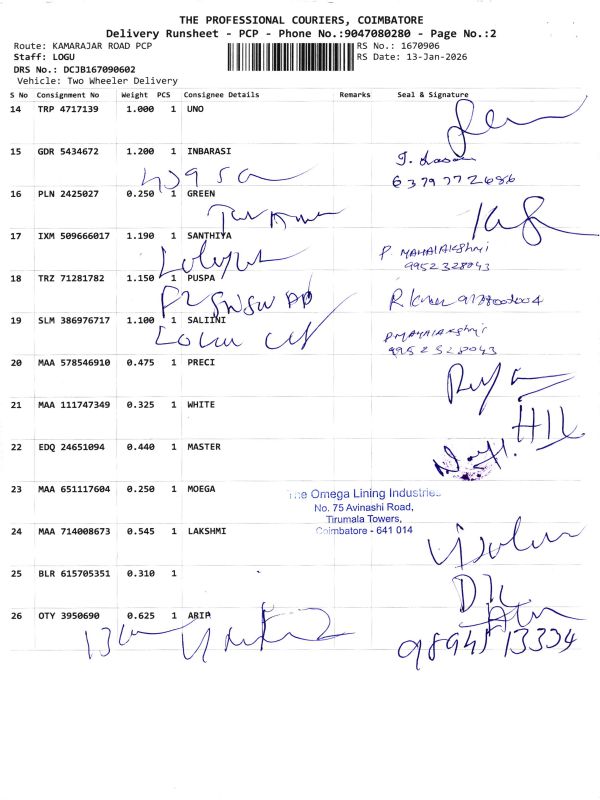 THE PROFESSIONAL COURIERS, COIMBATORE
Delivery Runsheet - PCP - Phone No.:9047080280 - Page No.:2
Route: KAMARAJAR ROAD PCP RS No.: 1670906
Staff: LOGU RS Date: 13-Jan-2026
DRS No.: DCJB167090602
Vehicle: Two Wheeler Delivery
S No Consignment No Weight PCS Consignee Details Remarks Seal & Signature
14 TRP 4717139 1.000 1 UNO
15 GDR 5434672 1.200 1 INBARASI
6379772686
16 PLN 2425027 0.250 1 GREEN
17 IXM 509666017 1.190 1 SANTHIYA
P. MAHALAKSHMI
9952328043
18 TRZ 71281782 1.150 1 PUSPA
19 SLM 386976717 1.100 1 SALIINI
P MAHALAKSHMI
9952328043
20 MAA 578546910 0.475 1 PRECI
21 MAA 111747349 0.325 1 WHITE
22 EDQ 24651094 0.440 1 MASTER
23 MAA 651117604 0.250 1 MOEGA
The Omega Lining Industries
No. 75 Avinashi Road,
Tirumala Towers,
Coimbatore - 641 014
24 MAA 714008673 0.545 1 LAKSHMI
25 BLR 615705351 0.310 1
26 OTY 3950690 0.625 1 ARIP
9894513334